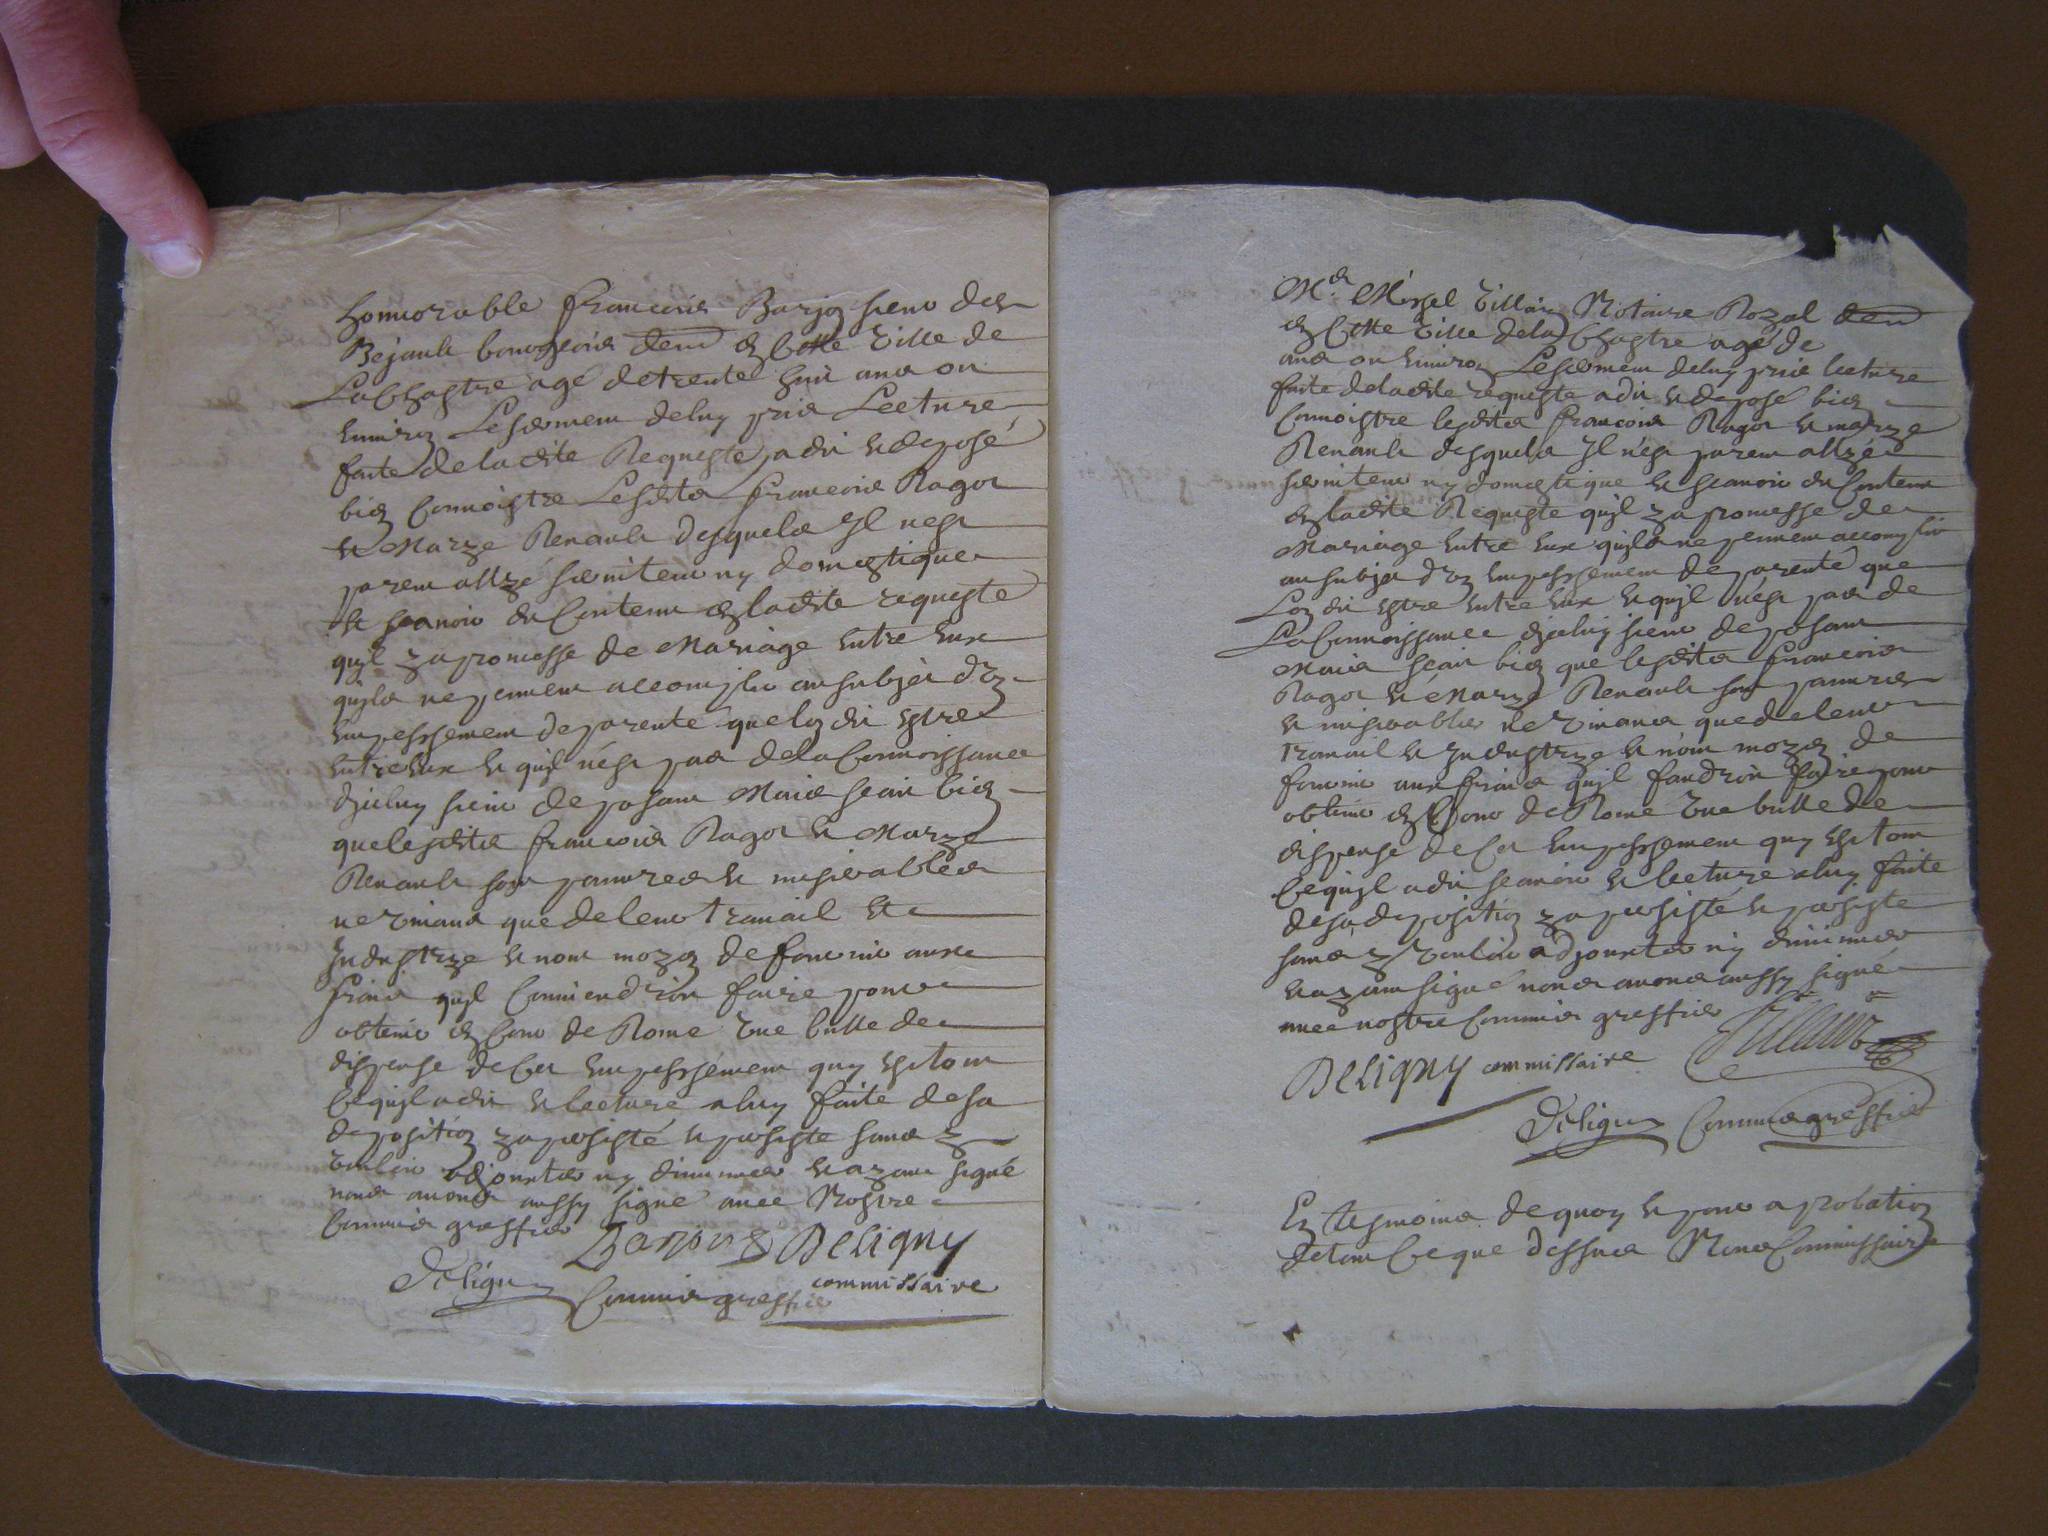 honnorable françois Barjon sieur des
Bejault bourgeois dem^t en cette ville de
La Chastre agé de trente huit ans ou
environ Le serment de luy pris Lecture
faite de ladite Requeste a dit et deposé
bien connoistre Lesdits françois Ragot
et Marye Renault desquels Il nest
parent allyé serviteur ny domestique
et scavoir du Contenu en ladite requeste
quyl y a promesse de Mariage entre eux
quyls ne peuvent accomplir au subjet d'un
empeschement de parenté que lon dit estre
entre eux et quyl n'est pas de la Connoissance
d'jceluy sieur deposant Mais scait bien
que lesdits françois Ragot et Marye
Renault sont pauvres et miserables
ne vivans que de leur travail et
Industrye et n'ont moyen de fournir aux
frais quyl conviendroit faire pour
obtenir en Cour de Rome une bulle de
dispense de cet empeschement quy est tout
ce quyl a dit et lecture a luy faite de sa
deposition y a persisté et persiste sans y
vouloir adjouster ny diminuer et ayant signé
nous avons aussy signé avec Nostre
Commis greffier Barjon Deligny
commissaire
Deligny Commis greffier
M^e Villain Notaire Royal dem
en cette ville de la Chastre agé de
ans ou environ Le serment de luy pris lecture
faite de ladite requeste a dit et deposé bien
Connoistre lesdits françois Ragot et marye
Renault desquels Il n'est parent allyé
serviteur ny domestique et scavoir du Contenu
en ladite Requeste quyl y a promesse de
Mariage entre eux quyls ne peuvent accomplir
au subjet d'un empeschement de parenté que
Lon dit estre entre eux et quyl n'est pas de
La Connoissance d'jceluy sieur deposant
Mais scait bien que lesdits françois
Ragot et Marye Renault sont pauvres
et miserables ne vivans que de leur
travail et Industrye et n'ont moyen de
fournir aux frais quyl faudroit faire pour
obtenir en Cour de Rome une bulle de
dispense de cet empeschement quy est tout
ce quyl a dit scavoir et lecture a luy faite
de sa deposition y a persisté et persiste
sans y vouloir adjouster ny diminuer
et ayant signé nous avons aussy signé
avec nostre Commis greffier Villain
Deligny commissaire
Deligny Commis greffier
En tesmoins de quoy et pour aprobation
de tout ce que dessus Nous Commissaire